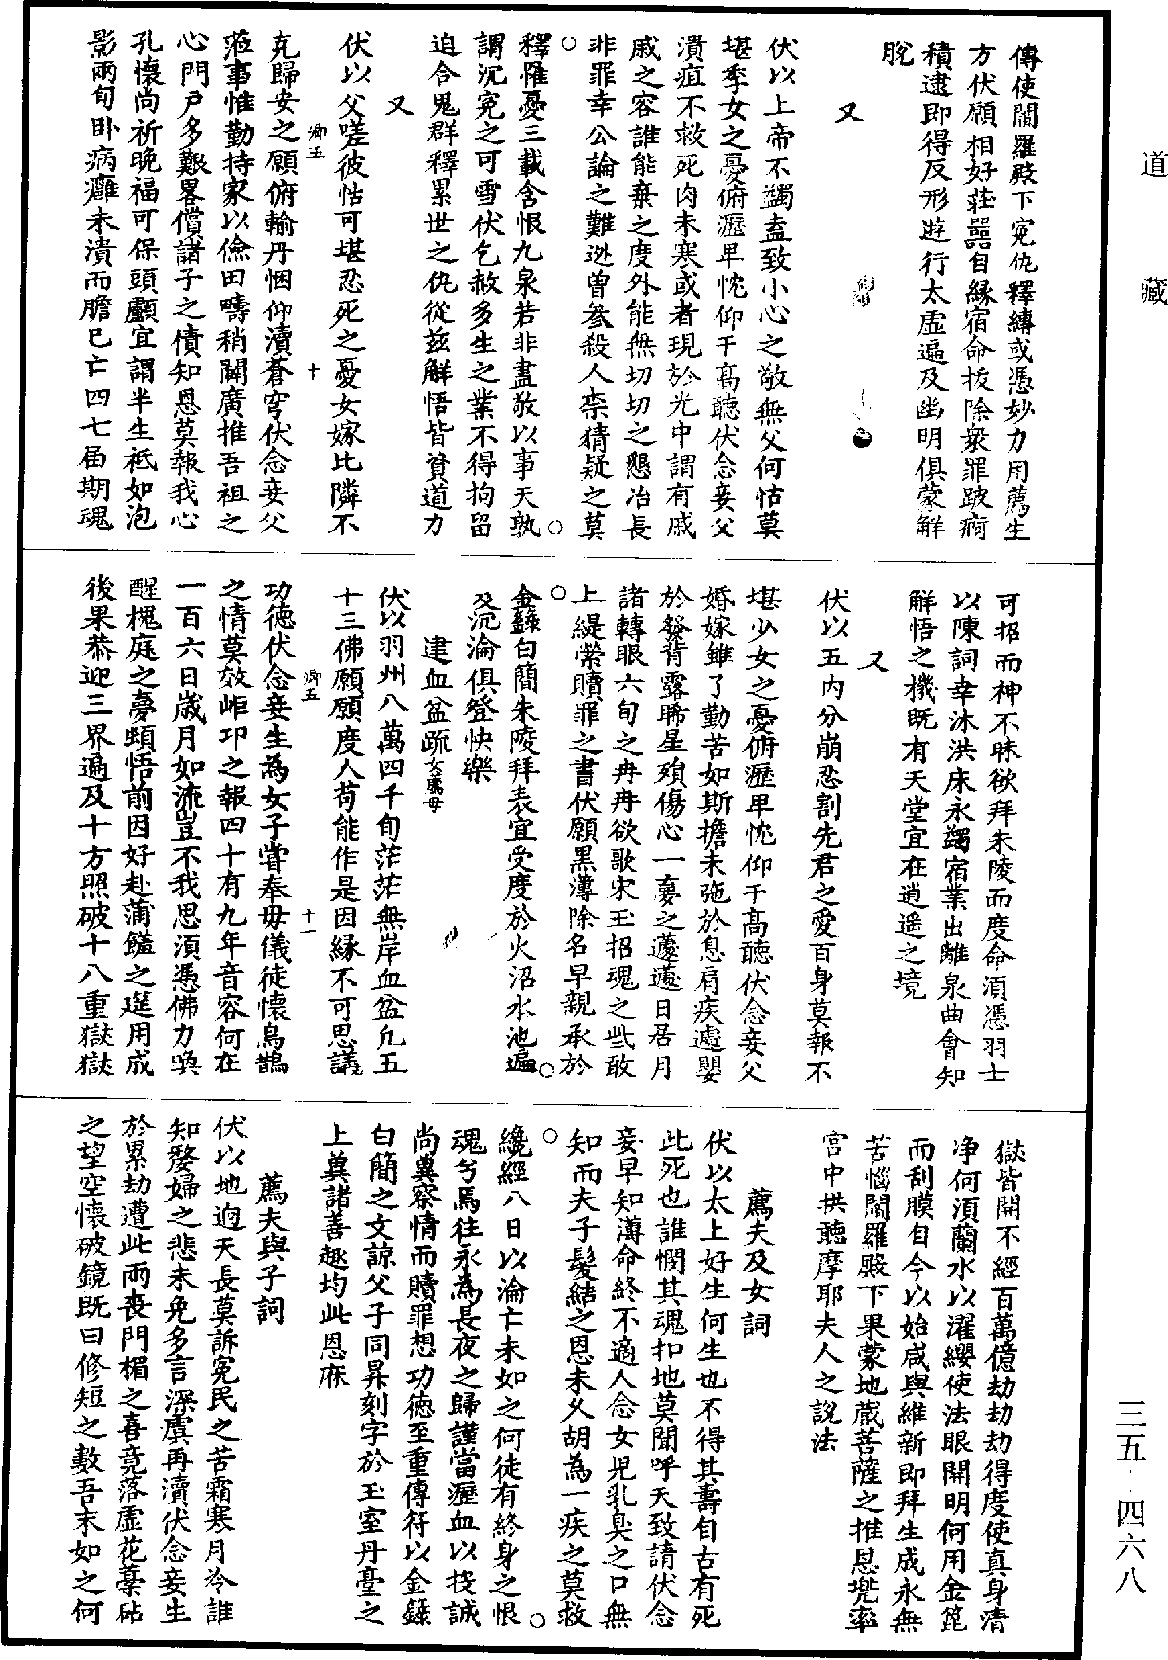 道藏
傳使閻羅殿下冤仇釋縛或憑妙力用薦生
方伏願相好莊嚴自緣宿命拔除衆罪跛痾
積逮即得反形遊行太虛遍及幽明俱蒙解
脫
又
伏以上帝不蠲盍致小心之敬無父何怙莫
堪季女之憂俯瀝卑忱仰干高聽伏念妾父
潰疽不救死肉未寒或者現於光中謂有戚
戚之容誰能棄之度外能無切切之懇冶長
非罪幸公論之難逃曾參殺人柰猜疑之莫
釋罹憂三載含恨九泉若非盡敬以事天孰
謂沉冤之可雪伏乞赦多生之業不得拘留
迫合鬼群釋累世之仇從茲解悟皆資道力
又
伏以父嗟彼怙可堪忍死之憂女嫁比隣不
克歸安之願俯輸丹悃仰瀆蒼穹伏念妾父
蒞事惟勤持家以儉田疇稍闢廣推吾祖之
心門戶多艱畧償諸子之債知恩莫報我心
孔懷尚祈晚福可保頭顱宜謂半生祇如泡
影兩旬卧病癰未潰而膽已亡四七届期魂
可招而神不昧欲拜朱陵而度命須憑羽士
以陳詞幸沐洪庥永蠲宿業出離泉曲會知
解悟之機既有天堂宜在逍遥之境
又
伏以五内分崩忍割先君之愛百身莫報不
堪少女之憂俯瀝卑忱仰干高聽伏念妾父
婚嫁雖了勤苦如斯擔未弛於息肩疾遽嬰
於發背露晞星殞傷心一夢之蘧蘧日居月
諸轉眼六旬之冉冉欲歌宋玉招魂之些敢
上緹縈贖罪之書伏願黑簿除名早親承於
金籙白簡朱陵拜表宜受度於火沼水池遍
及沉淪俱登快樂
建血盆疏女薦母
伏以羽州八萬四千旬茫茫無岸血盆凢五
十三佛願願度人苟能作是因緣不可思議
功德伏念妾生為女子甞奉毋儀徒懷烏鵲
之情莫效岵卭之報四十有九年音容何在
一百六日歲月如流豈不我思須憑佛力喚
醒槐庭之夢頓悟前因好赴蒲饈之筵用成
後果恭迎三界遍及十方照破十八重獄獄
獄皆開不經百萬億劫劫劫得度使真身清
净何須蘭水以濯纓使法眼開明何用金篦
而刮膜自今以始咸與維新即拜生成永無
苦惱閻羅殿下果蒙地藏菩薩之推恩兠率
宫中拱聽摩耶夫人之說法
薦夫及女詞
伏以太上好生何生也不得其壽自古有死
此死也誰憫其魂扣地莫聞呼天致請伏念
妾早知薄命終不適人念女児乳臭之口無
知而夫子髮結之恩未乆胡為一疾之莫救
纔經八日以淪亡未如之何徒有終身之恨
魂兮焉往永為長夜之歸謹當瀝血以投誠
尚冀察情而贖罪想功德至重傳符以金籙
白簡之文諒父子同昇刻字於玉室丹臺之
上奠諸善趣均此恩庥
薦夫與子詞
伏以地逈天長莫訴冤民之苦霜寒月冷誰
知嫠婦之悲未免多言深虞再瀆伏念妾生
於累劫遭此兩喪門楣之喜竟落虛花藁砧
之望空懷破鏡既曰修短之數吾末如之何
三五-四六八